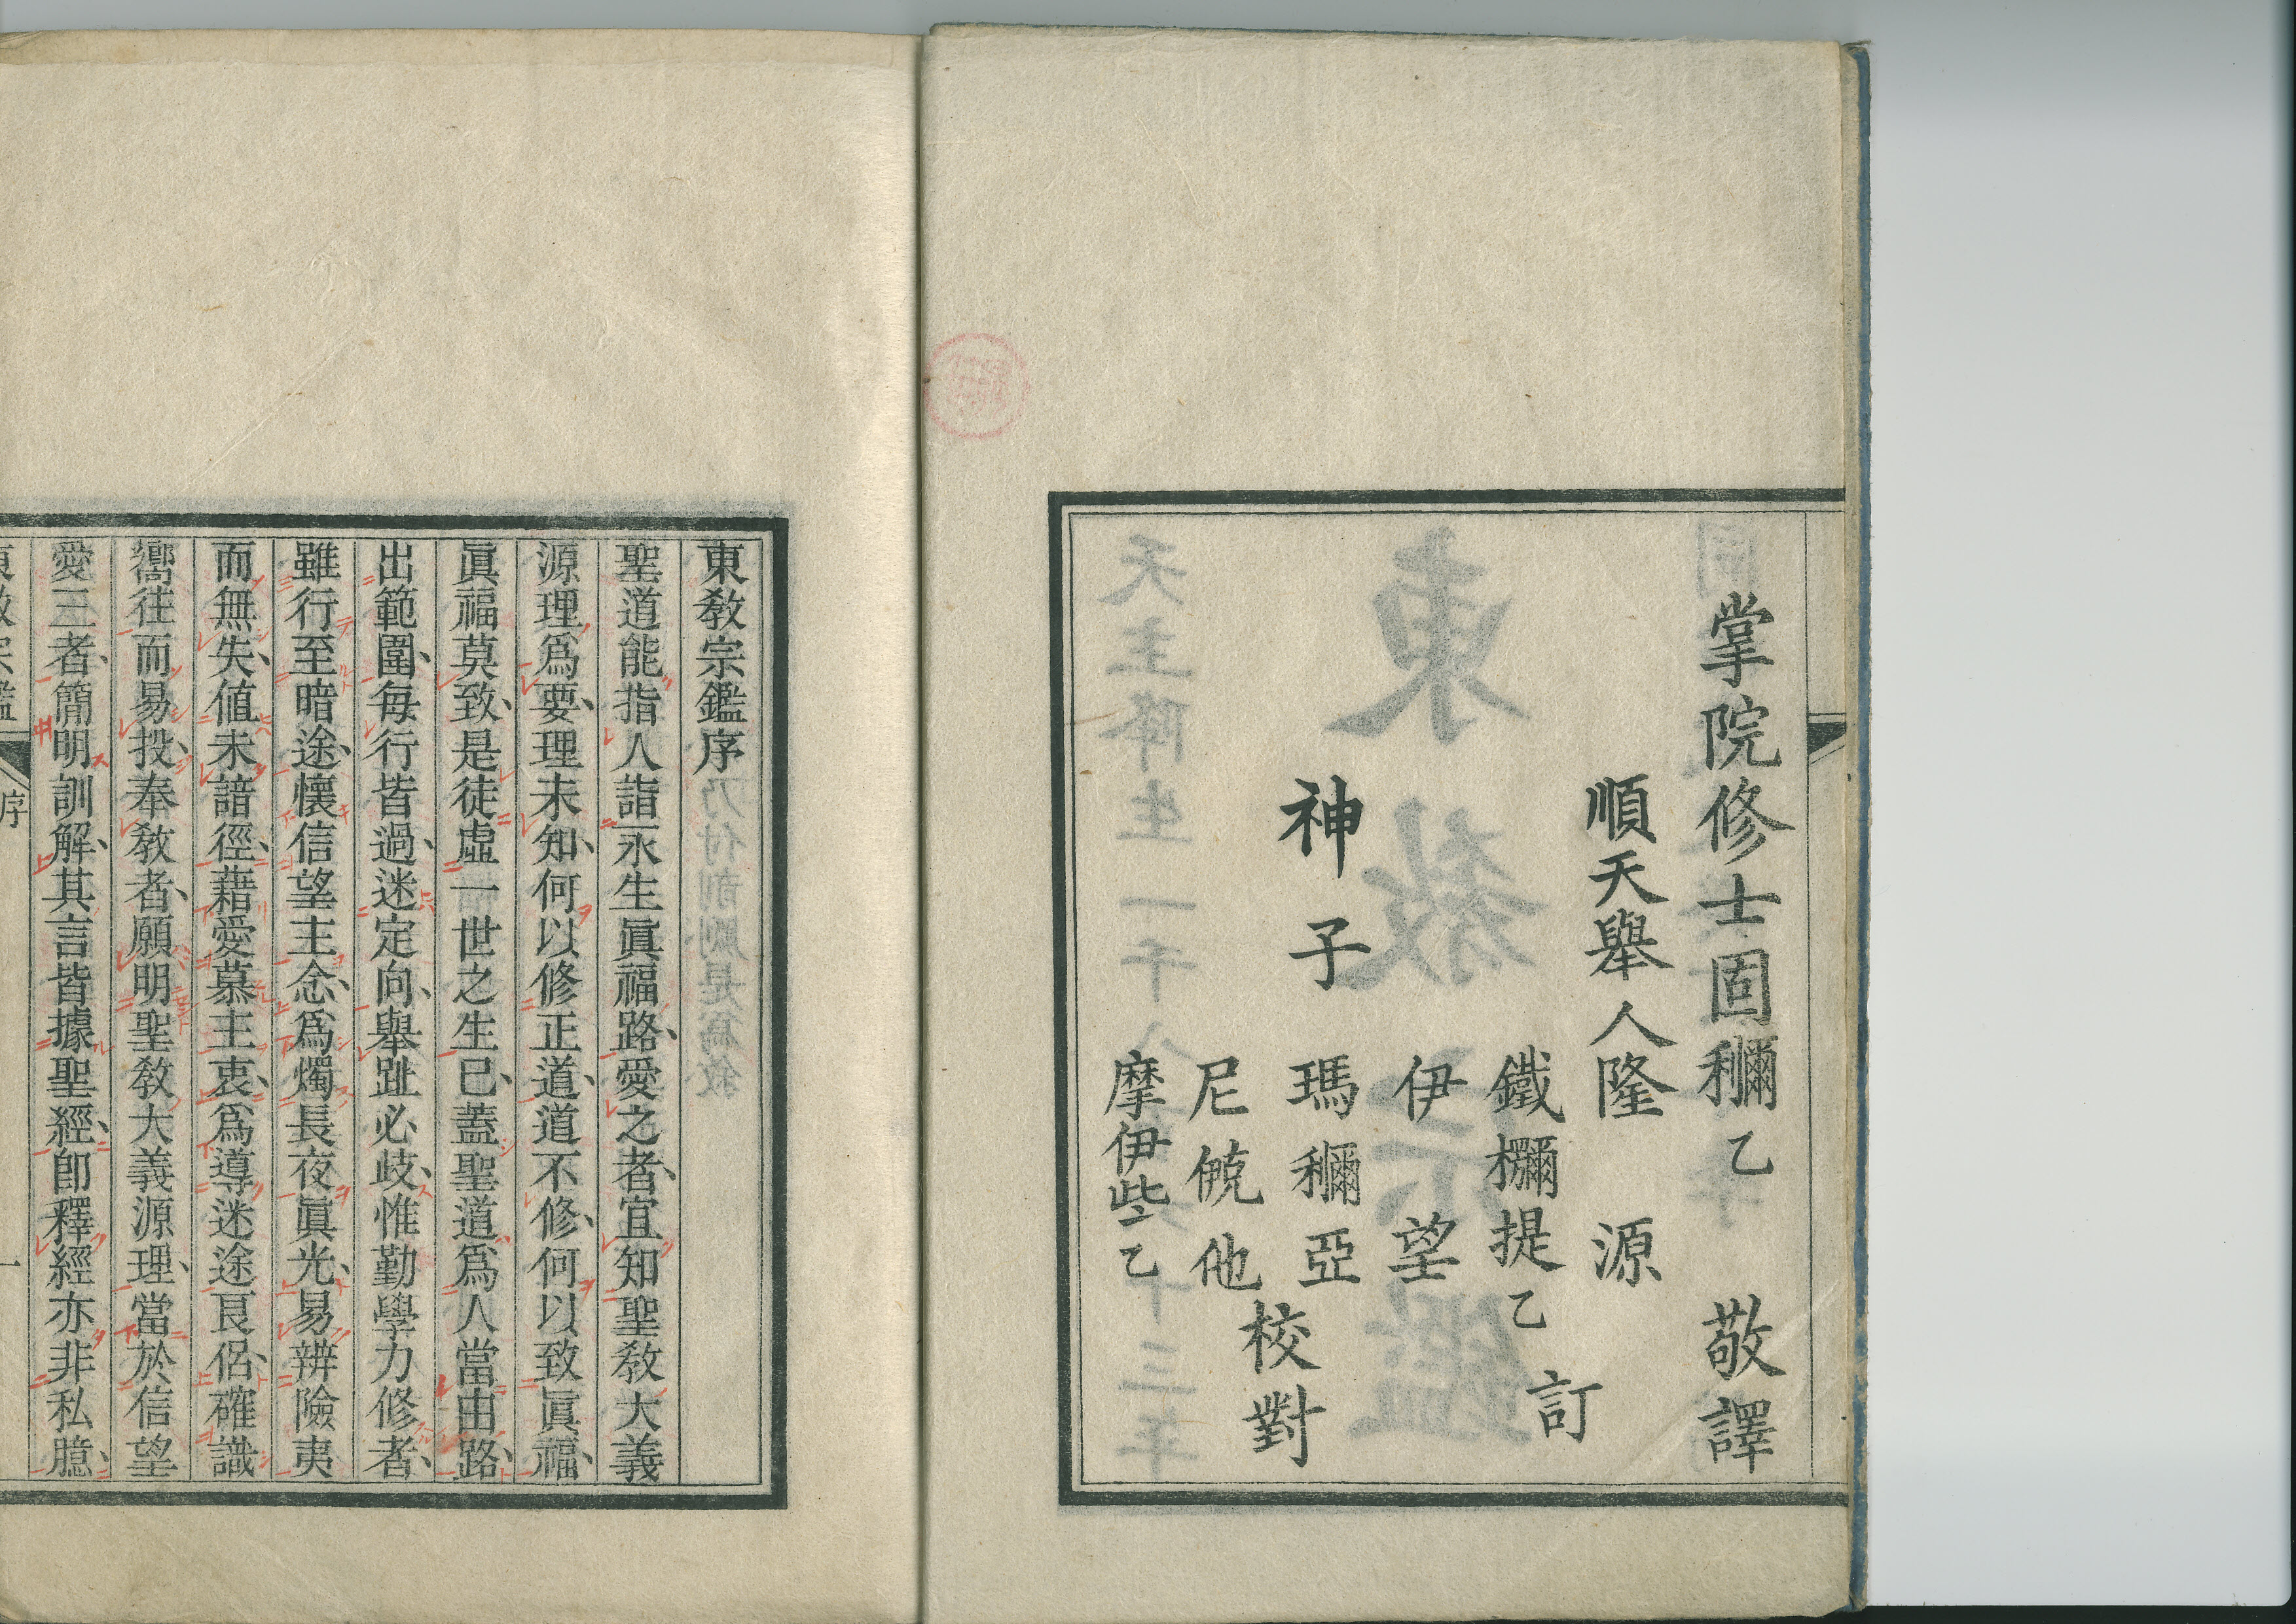 掌院修士固𥛮乙 敬譯
順天舉人隆 源
鐵檷提乙 訂
伊 望
神子 瑪𥛮亞
尼僥他 校對
摩伊些乙
東教宗鑑序
聖道能指人詣永生眞福路、愛之者、宜知聖教大義
源理爲要、理未知、何以修正道、道不修、何以致眞福、
眞福莫致、是徒虛一世之生已、蓋聖道爲人當由路、
出範圍、每行皆過、迷定向、舉趾必歧、惟勤學力修者、
雖行至暗途、懷信望主念、爲燭長夜眞光、易辨險夷
而無失、値未諳徑、藉愛慕主衷、爲導迷途良侶、確識
嚮往而易投、奉教者、願明聖教大義源理、當於信望
愛三者、簡明訓解、其言皆據聖經、卽釋經亦非私臆、
東教宗鑑 序 一